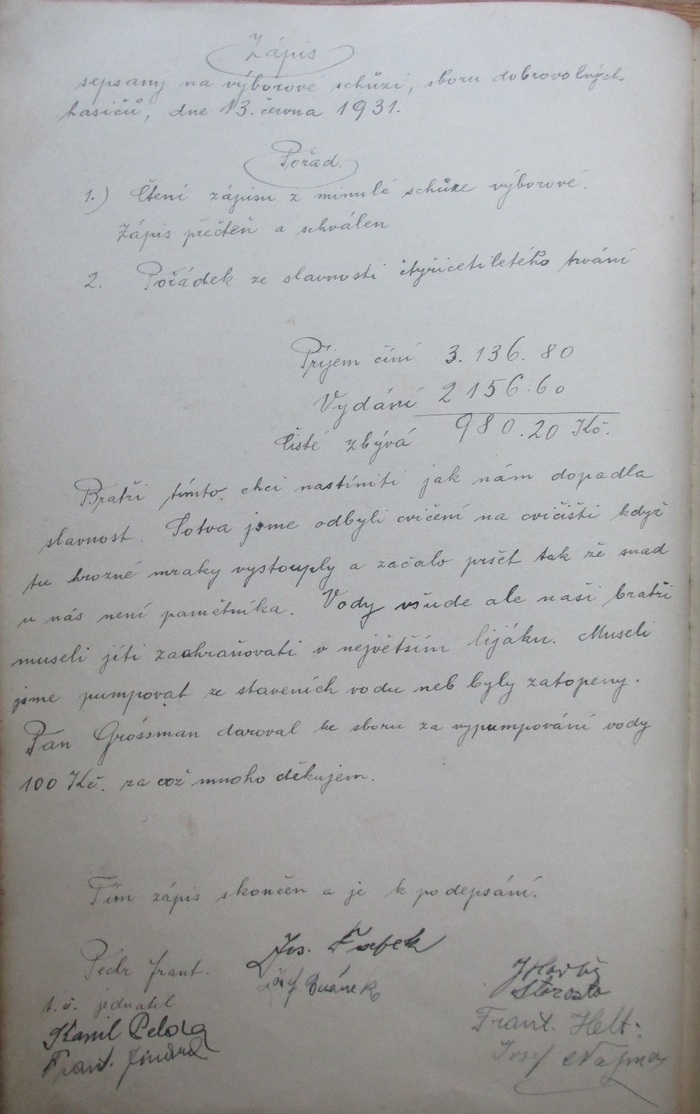 Zápis
sepsaný na výborové schůzi, sboru dobrovolných
hasičů, dne 13. června 1931.
Pořad.
1.) Čtení zápisu z minulé schůze výborové.
Zápis přečteň a schválen
2. Pořádek ze slavnosti čtyřicetiletého trvání
Příjem činí 3.136.80
Vydání 2156.60
čisté zbývá 980.20 Kč.
Bratři tímto chci nastíniti jak nám dopadla
slavnost. Sotva jsme odbyli cvičení na cvičišti když
tu hrozné mraky vystouply a začalo pršet tak že snad
u nás není pamětníka. Vody všude ale naši bratři
museli jíti zachraňovati v největším lijáku. Museli
jsme pumpovat ze staveních vodu neb byly zatopeny.
Pan Grossman daroval ke sboru za vypumpování vody
100 Kč. za což mnoho děkujem.
Tím zápis skončen a je k podepsání.
Jos.
Pechr Frant. Josef
t. č. jednatel Starosta
Kamil Pelda Frant. Helt.
Frant. Josef